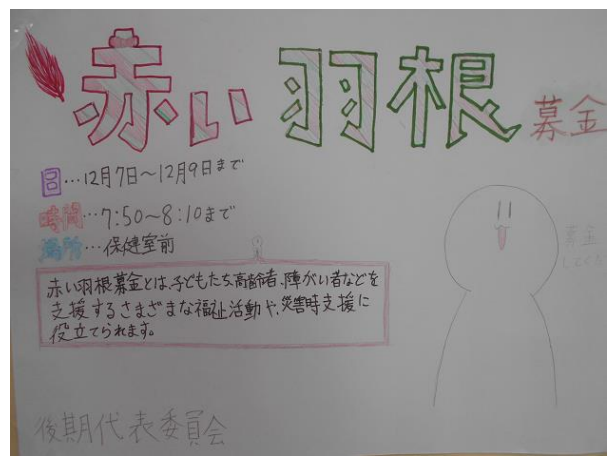 赤い羽根募金
日…12月7日～12月9日まで
時間…7:50～8:10まで
場所…保健室前
赤い羽根募金とは、子どもたち、高齢者、障がい者などを
支援するさまざまな福祉活動や、災害時支援に
役立てられます。
募金
後期代表委員会